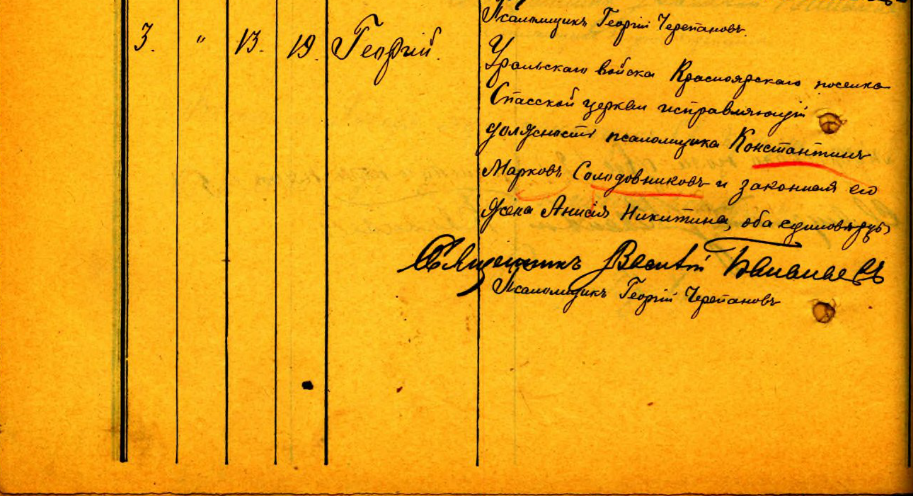 Псаломщикъ Георгій Черепановъ.
3. " 13. 19. Георгій.
Уральскаго войска Красноярскаго поселка
Спасской церкви исправляющій
должность псаломщика Константинъ
Марковъ Солодовниковъ и законная его
жена Анисія Никитина, оба единовѣрцы
Священникъ Василій
Псаломщикъ Георгій Черепановъ